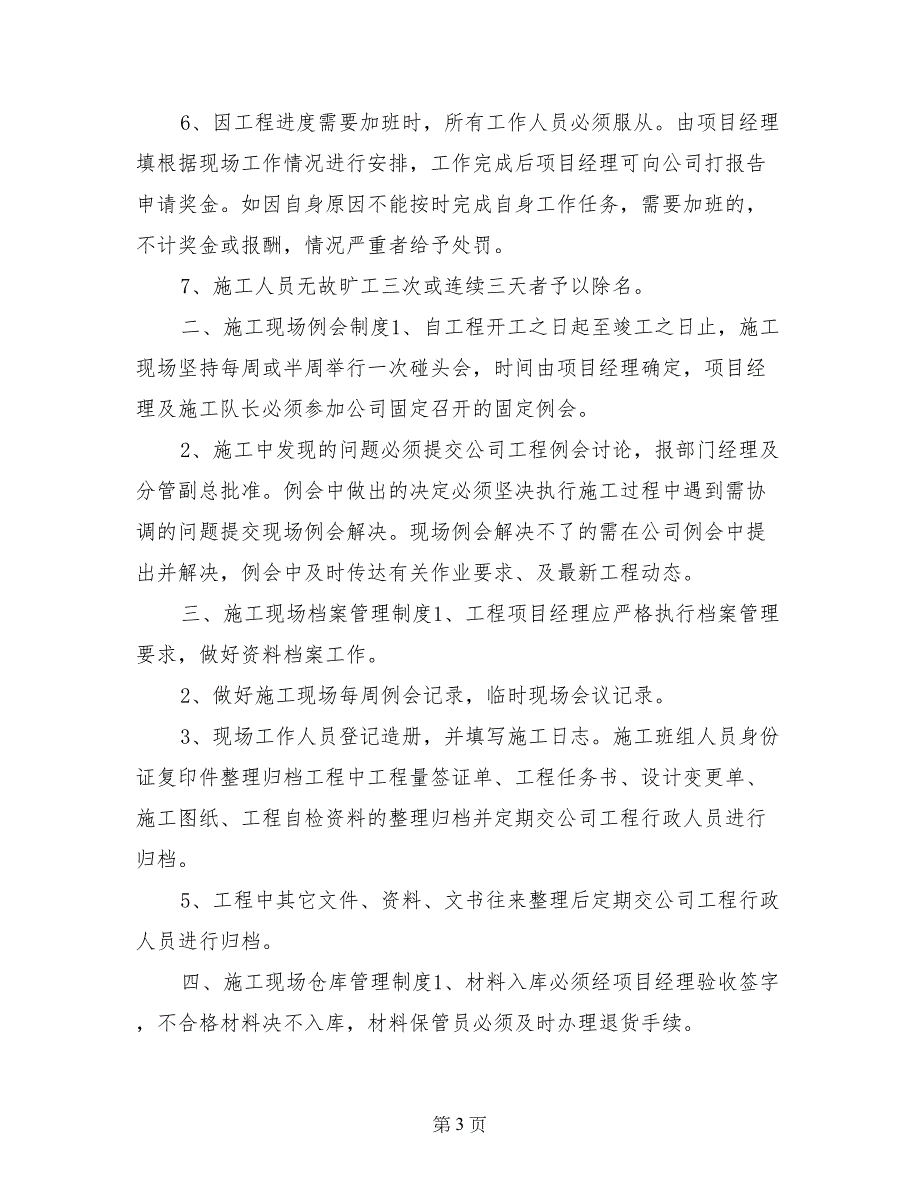 6、因工程进度需要加班时，所有工作人员必须服从。由项目经理
填根据现场工作情况进行安排，工作完成后项目经理可向公司打报告
申请奖金。如因自身原因不能按时完成自身工作任务，需要加班的，
不计奖金或报酬，情况严重者给予处罚。
7、施工人员无故旷工三次或连续三天者予以除名。
二、施工现场例会制度1、自工程开工之日起至竣工之日止，施工
现场坚持每周或半周举行一次碰头会，时间由项目经理确定，项目经
理及施工队长必须参加公司固定召开的固定例会。
2、施工中发现的问题必须提交公司工程例会讨论，报部门经理及
分管副总批准。例会中做出的决定必须坚决执行施工过程中遇到需协
调的问题提交现场例会解决。现场例会解决不了的需在公司例会中提
出并解决，例会中及时传达有关作业要求、及最新工程动态。
三、施工现场档案管理制度1、工程项目经理应严格执行档案管理
要求，做好资料档案工作。
2、做好施工现场每周例会记录，临时现场会议记录。
3、现场工作人员登记造册，并填写施工日志。施工班组人员身份
证复印件整理归档工程中工程量签证单、工程任务书、设计变更单、
施工图纸、工程自检资料的整理归档并定期交公司工程行政人员进行
归档。
5、工程中其它文件、资料、文书往来整理后定期交公司工程行政
人员进行归档。
四、施工现场仓库管理制度1、材料入库必须经项目经理验收签字
，不合格材料决不入库，材料保管员必须及时办理退货手续。
第 3 页